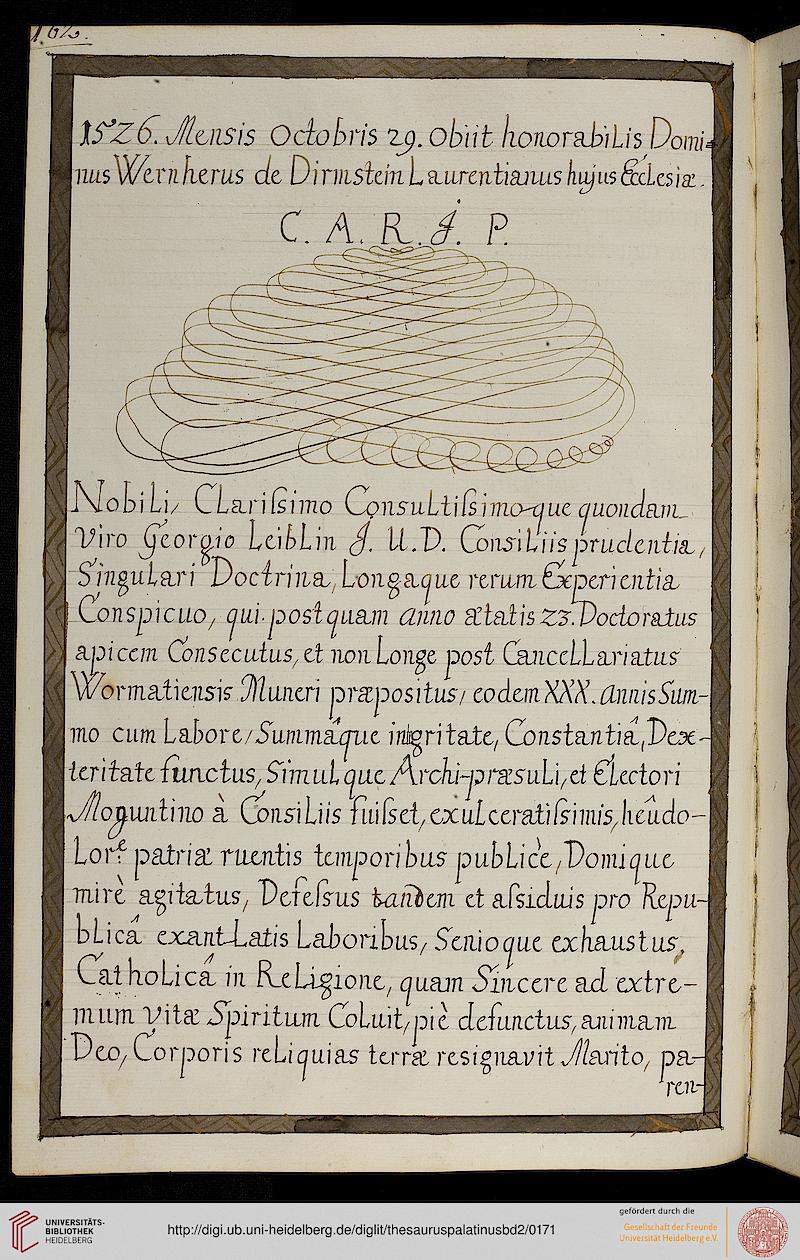 162.
1526. Mensis Octobris 29. obiit honorabilis Domi=
nus Wernherus de Dirmstein Laurentianus hujus Ecclesiæ.
C. A. R. J. P.
Nobili, Clarissimo Consultissimo-que quondam
Viro Georgio Leiblin J. U. D. Consiliis prudentia,
Singulari Doctrina, Longaque rerum Experientia
Conspicuo, qui postquam anno ætatis 23. Doctoratus
apicem Consecutus, et non Longe post Cancellariatus
Wormatiensis Muneri præpositus, eodem XXX. annis Sum-
mo cum Labore, Summâque intgritate, Constantiâ, Dex-
teritate functus, Simulque Archi-præsuli, et Electori
Moguntino à Consiliis fuisset, exulceratissimis, heû do-
Lore patriæ ruentis temporibus publicè, Domique
mirè agitatus, Defessus tandem et assiduis pro Repu-
blicâ exant-Latis Laboribus, Senioque exhaustus,
Catholicâ in Religione, quam Sincere ad extre-
mum vitæ Spiritum Coluit, piè defunctus, animam
Deo, Corporis reliquias terræ resignavit Marito, pa-
ren-
UNIVERSITÄTS-
BIBLIOTHEK
HEIDELBERG
http://digi.ub.uni-heidelberg.de/diglit/thesauruspalatinusbd2/0171
gefördert durch die
Gesellschaft der Freunde
Universität Heidelberg e.V.